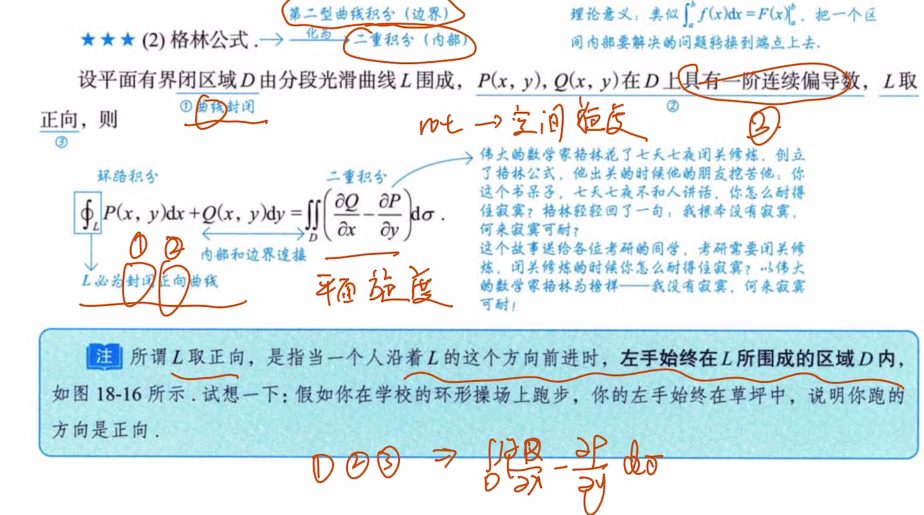 第二型曲线积分(边界)
理论意义:类似∫ₐᵇ f(x)dx=F(x)|ₐᵇ,把一个区
间内部要解决的问题转换到端点上去.
★★★ (2) 格林公式. 化为 二重积分(内部)
设平面有界闭区域 D 由分段光滑曲线 L 围成, P(x, y), Q(x, y) 在 D 上具有一阶连续偏导数, L 取
①曲线封闭 ②
正向, 则
③
rot → 空间旋度 ③
环路积分 二重积分
∮_L P(x, y)dx+Q(x, y)dy=∬_D(∂Q/∂x-∂P/∂y)dσ.
① ② 内部和边界连接
L必为封闭正向曲线
平面旋度
伟大的数学家格林花了七天七夜闭关修炼,创立
了格林公式,他出关的时候他的朋友挖苦他:你
这个书呆子,七天七夜不和人讲话,你怎么耐得
住寂寞?格林轻轻回了一句:我根本没有寂寞,
何来寂寞可耐?
这个故事送给各位考研的同学,考研需要闭关修
炼,闭关修炼的时候你怎么耐得住寂寞?以伟大
的数学家格林为榜样——我没有寂寞,何来寂寞
可耐!
注 所谓 L 取正向,是指当一个人沿着 L 的这个方向前进时,左手始终在 L 所围成的区域 D 内,
如图 18-16 所示.试想一下:假如你在学校的环形操场上跑步,你的左手始终在草坪中,说明你跑的
方向是正向.
①②③ ⇒ ∬_D ∂Q/∂x-∂P/∂y dσ